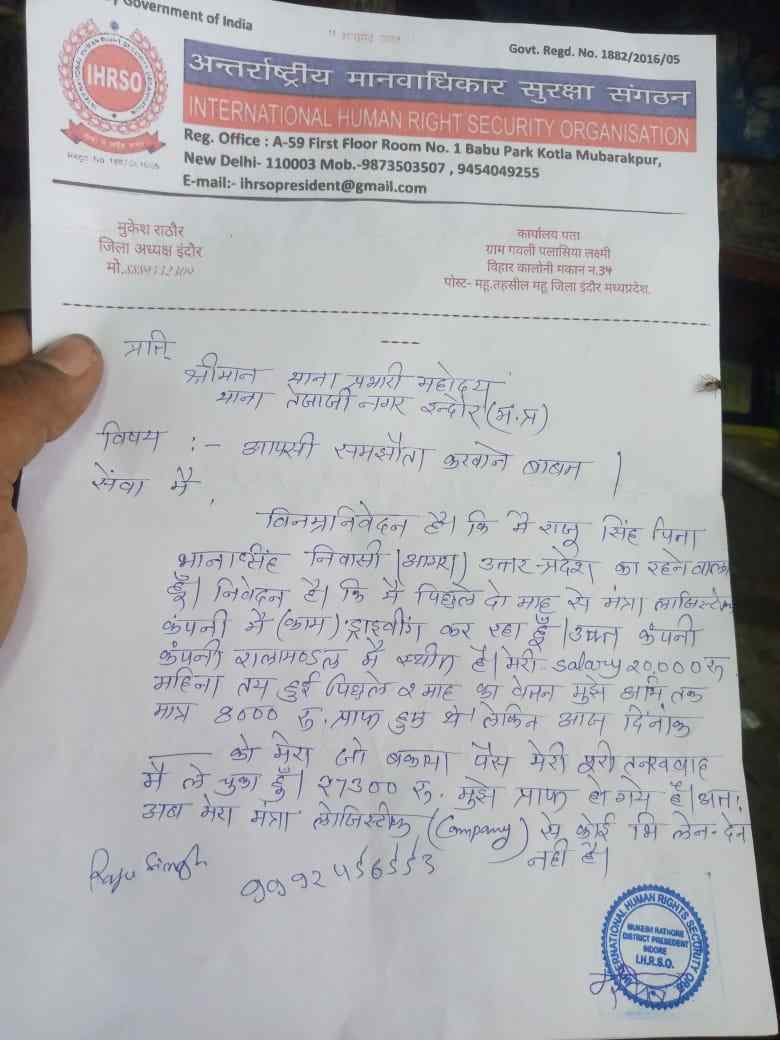 Government of India
Govt. Regd. No. 1882/2016/05
IHRSO
अन्तर्राष्ट्रीय मानवाधिकार सुरक्षा संगठन
INTERNATIONAL HUMAN RIGHT SECURITY ORGANISATION
Reg. Office : A-59 First Floor Room No. 1 Babu Park Kotla Mubarakpur,
New Delhi- 110003 Mob.-9873503507 , 9454049255
E-mail:- ihrsopresident@gmail.com
मुकेश राठौर
जिला अध्यक्ष इंदौर
मो.
कार्यालय पता
ग्राम गवली पलासिया लक्ष्मी
विहार कालोनी मकान न.34
पोस्ट- महू.तहसील महू जिला इंदौर मध्यप्रदेश.
प्रति
श्रीमान थाना प्रभारी महोदय
थाना तेजाजी नगर इन्दौर (म.प्र)
विषय :- आपसी समझौता करवाने बाबत |
सेंवा मै,
विनम्रनिवेदन है। कि मै राजू सिंह पिता
सिंह निवासी (आगरा) उत्तर-प्रदेश का रहने वाला
हूँ। निवेदन है। कि मै पिछले दो माह से मंत्रा लाजिस्टीक
कंपनी मै (काम) ड्राइवींग कर रहा हूँ। उक्त कंपनी
कंपनी रालामण्डल मै स्थीत है। मेरी salary 20,000 रु
महिना तय हुई पिछले 2 माह का वेतन मुझे अभि तक
मात्र 8000 रु. प्राप्त हुए थे। लेकिन आज दिनांक
____ को मेरा जो बकाया पैस मेरी पूरी तनख्वाह
मै ले चुका हूँ। 27300 रु. मुझे प्राप्त हो गये है। अतः
अब मेरा मंत्रा लोजिस्टीक (Company) से कोई भि लेन-देन
नही है।
Raju Singh
INTERNATIONAL HUMAN RIGHTS SECURITY ORG
MUKESH RATHORE
DISTRICT PRESEDENT
INDORE
I.H.R.S.O.